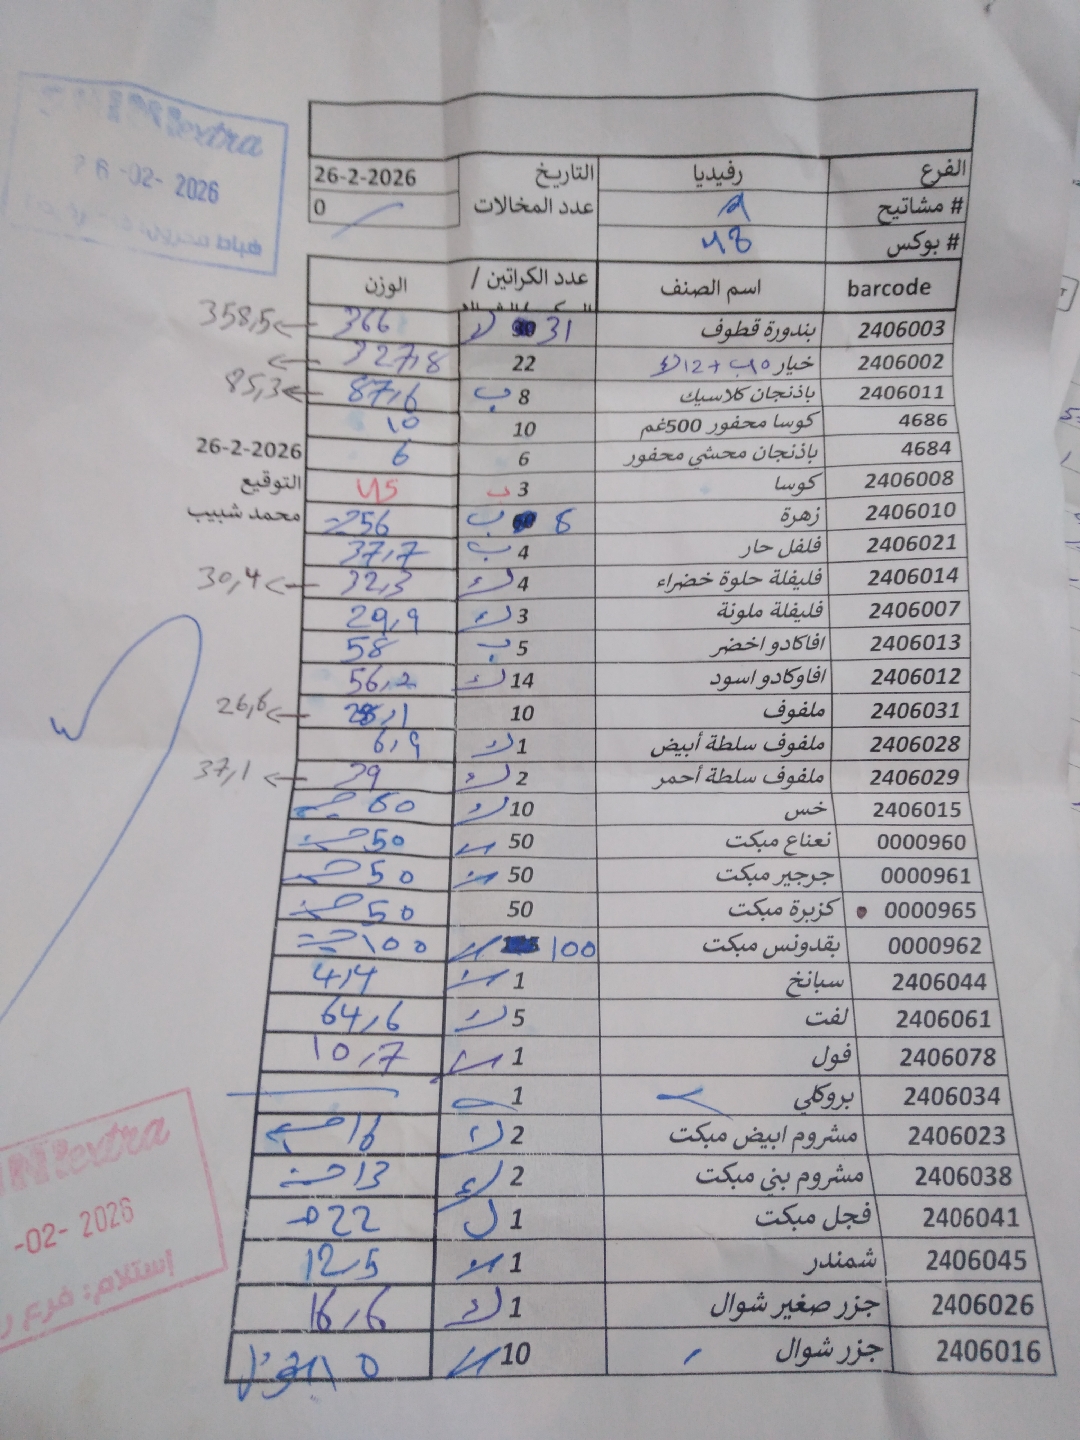 extra
26-02-2026
الفرع رفيديا التاريخ 26-2-2026
# مشاتيح عدد المخالات 0
# بوكس 48
barcode اسم الصنف عدد الكراتين / الوزن
2406003 بندورة قطوف 31 366 358,5
2406002 خيار 22 327,8
2406011 باذنجان كلاسيك 8 ب 87,6 85,3
4686 كوسا محفور 500غم 10 10
4684 باذنجان محشي محفور 6 6
26-2-2026
2406008 كوسا 3 ب 45
التوقيع
2406010 زهرة 8 ب 256
محمد شبيب
2406021 فلفل حار 4 ب 37,7
2406014 فليفلة حلوة خضراء 4 32,3 30,4
2406007 فليفلة ملونة 3 29,9
2406013 افاكادو اخضر 5 ب 58
2406012 افاوكادو اسود 14 56,2
2406031 ملفوف 10 28,1 26,6
2406028 ملفوف سلطة أبيض 1 6,9
2406029 ملفوف سلطة أحمر 2 39 37,1
2406015 خس 10 60
0000960 نعناع مبكت 50 50
0000961 جرجير مبكت 50 50
0000965 كزبرة مبكت 50 50
0000962 بقدونس مبكت 100 100
2406044 سبانخ 1 4,4
2406061 لفت 5 64,6
2406078 فول 1 10,7
2406034 بروكلي 1
2406023 مشروم ابيض مبكت 2 16
2406038 مشروم بني مبكت 2 13
2406041 فجل مبكت 1 22
2406045 شمندر 1 12,5
2406026 جزر صغير شوال 1 16,6
2406016 جزر شوال 10
extra
-02-2026
إستلام: فرع ر